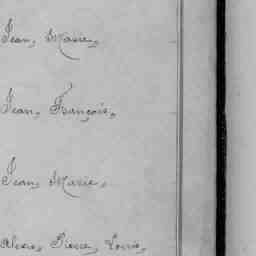 Jean, Marie,
Jean, François,
Jean, Marie,
Pierre, Louis,